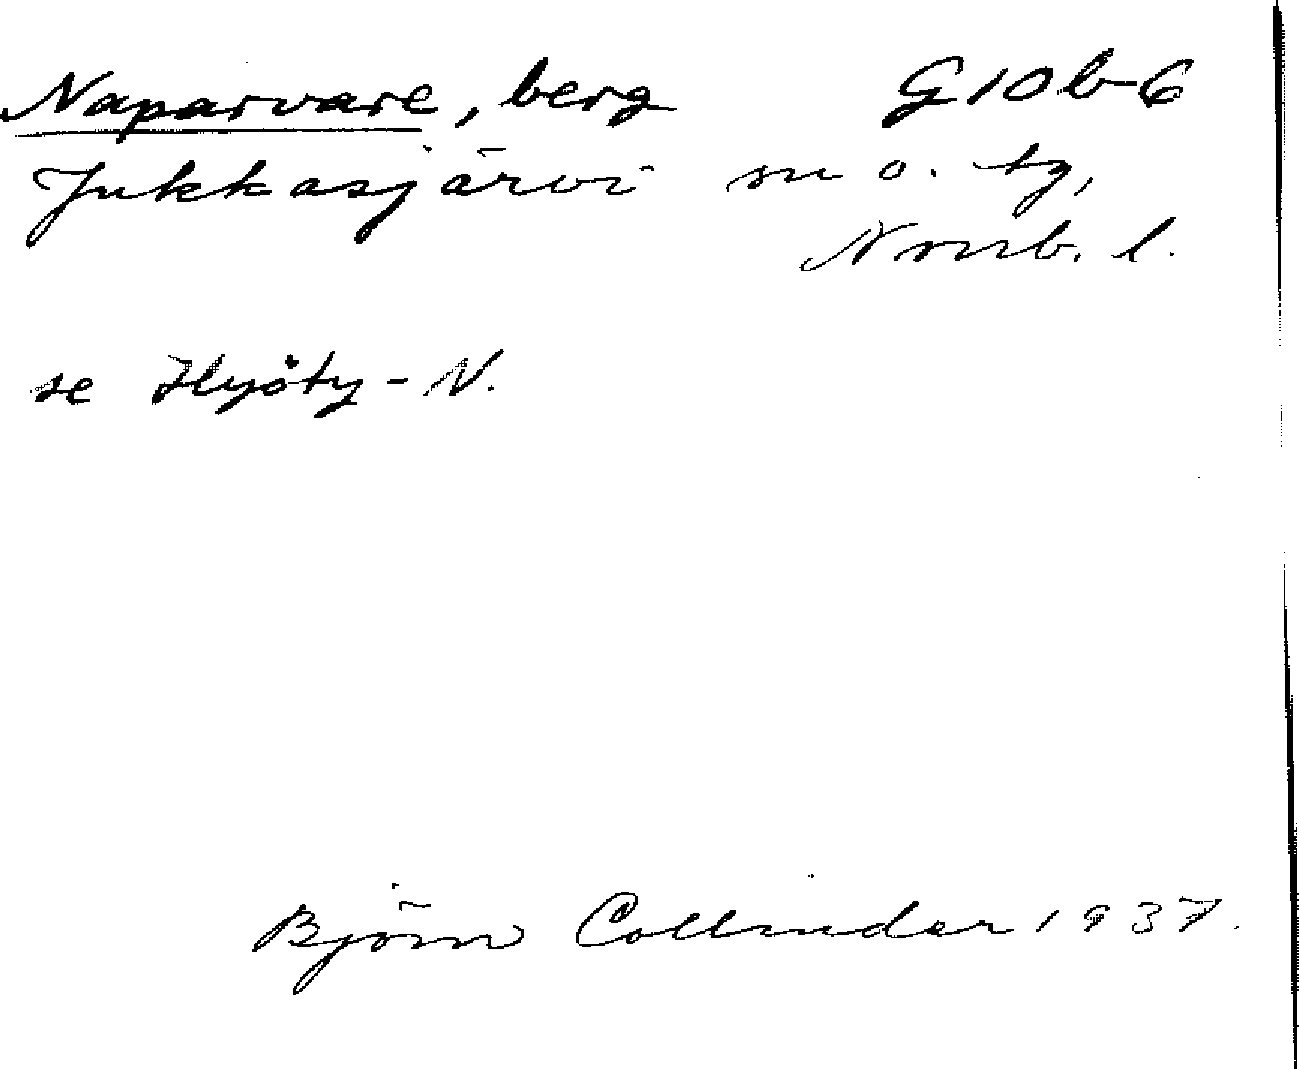 Naparvare, berg G10b-6
Jukkasjärvi sn o. tg,
Norrb. l.
se Hyöty-N.
Björn Collinder 1937.